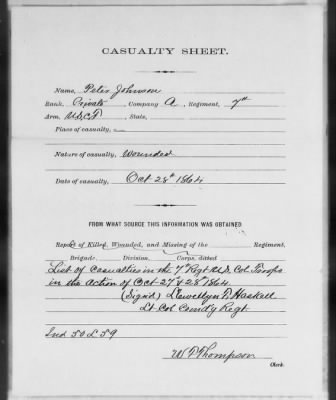 CASUALTY SHEET.
Name, Peter Johnson
Rank, Private, Company A, Regiment, 7th
Arm, U.S.C.T, State,
Place of casualty, —
Nature of casualty, Wounded
Date of casualty, Oct 28th 1864
FROM WHAT SOURCE THIS INFORMATION WAS OBTAINED
Report of Killed, Wounded, and Missing of the Regiment,
Brigade, Division, Corps, dated
List of Casualties in the 7th Regt U.S. Col Troops
in the action of Oct 27th & 28th 1864
(Signed) Llewellyn F. Haskell
Lt Col Comdg Regt
50 L 59
W T Thompson
Clerk.